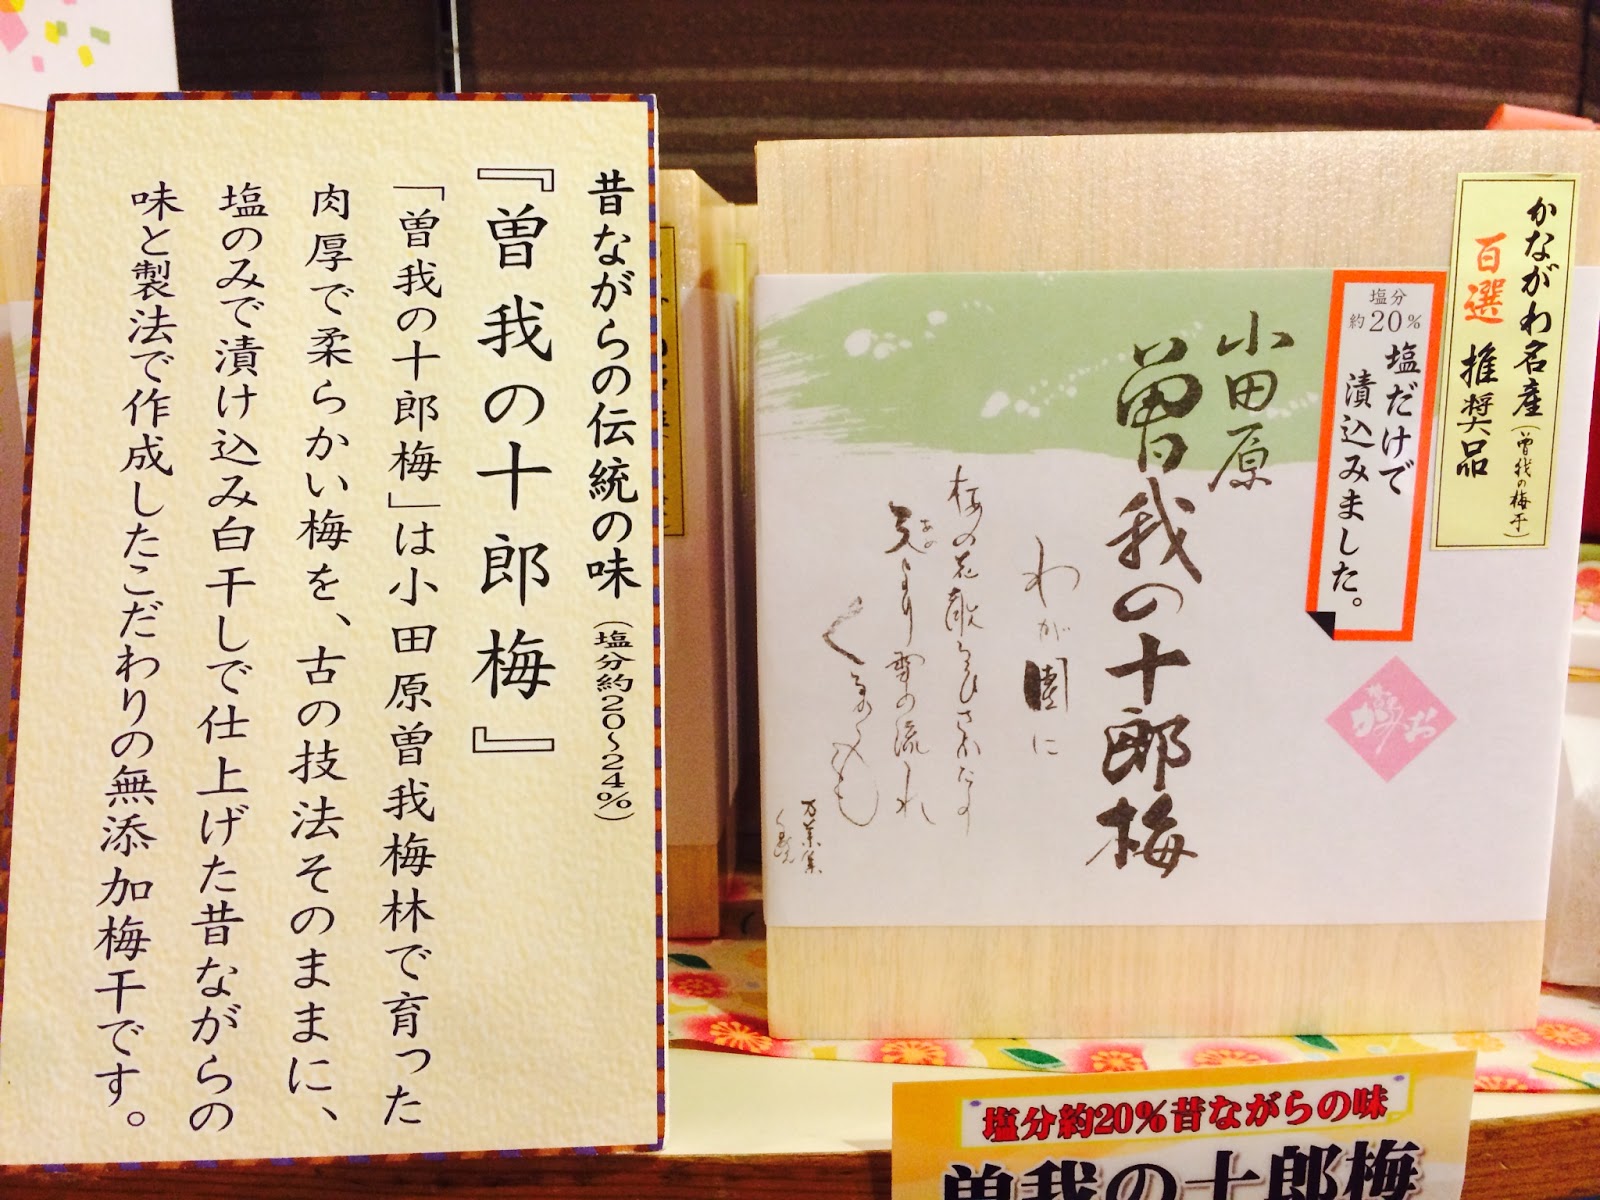 昔ながらの伝統の味(塩分約20〜24%)
『曽我の十郎梅』
「曽我の十郎梅」は小田原曽我梅林で育った
肉厚で柔らかい梅を、古の技法そのままに、
塩のみで漬け込み白干しで仕上げた昔ながらの
味と製法で作成したこだわりの無添加梅干です。
かながわ名産(曽我の梅干)
百選 推奨品
塩分
約20%
塩だけで
漬込みました。
小田原
曽我の十郎梅
わが園に
梅の花散る
天より雪の流れ
くるかも
万葉集
塩分約20%昔ながらの味
曽我の十郎梅